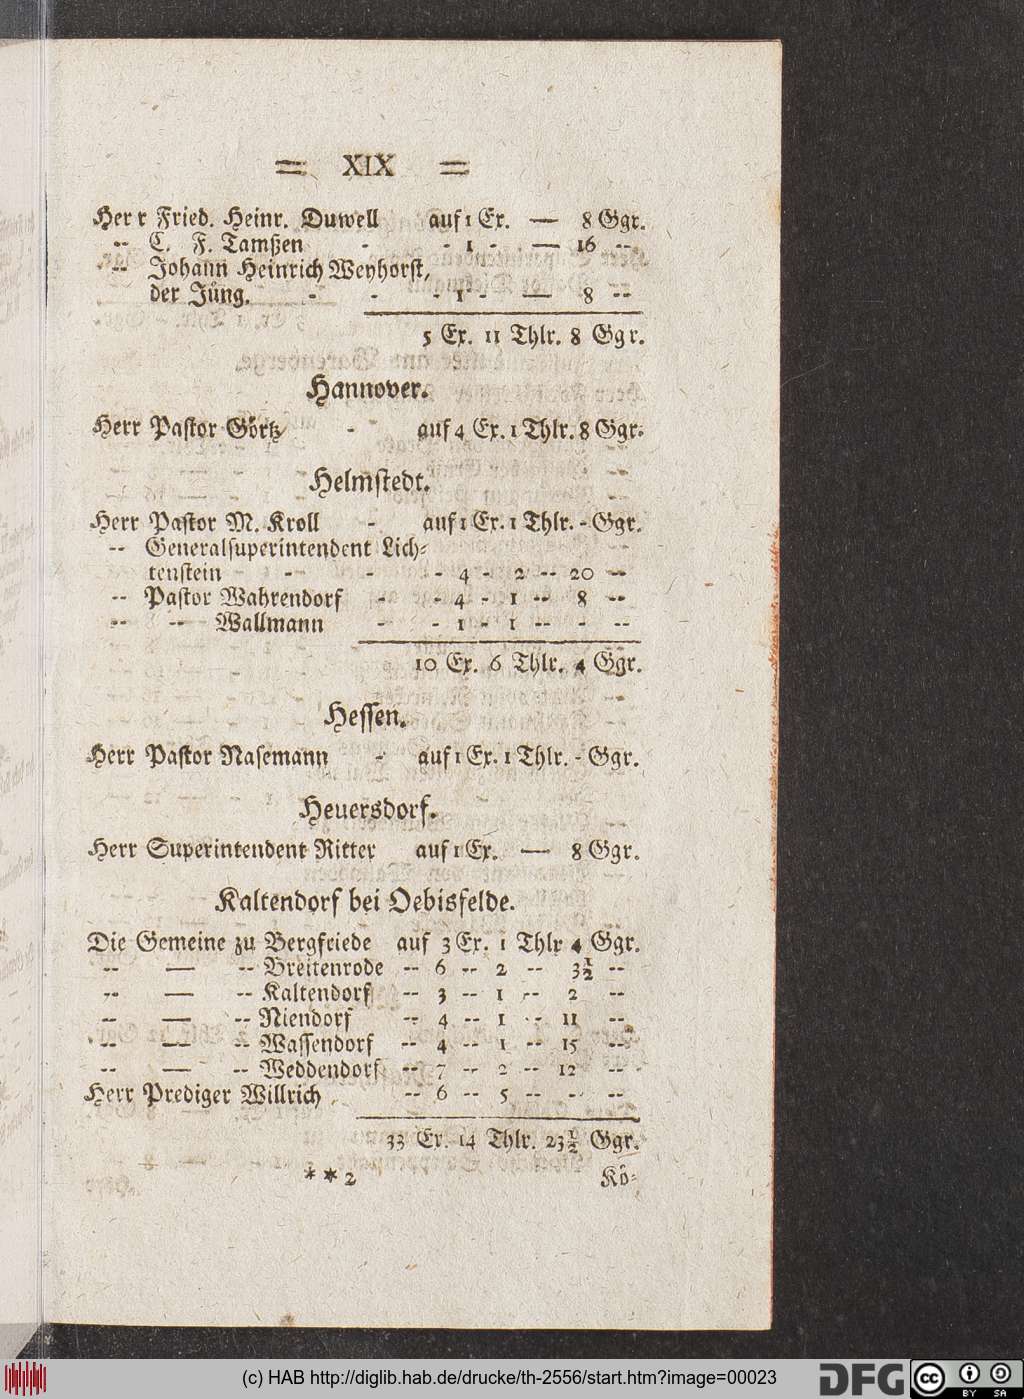 = XIX =
Herr Fried. Heinr. Duwell auf 1 Ex. — 8 Ggr.
-- C. F. Tamßen - - 1 - — 16 --
-- Johann Heinrich Weyhorst,
der Jüng. - - - 1 - — 8 --
5 Ex. 11 Thlr. 8 Ggr.
Hannover.
Herr Pastor Görtz - auf 4 Ex. 1 Thlr. 8 Ggr.
Helmstedt.
Herr Pastor M. Kroll - auf 1 Ex. 1 Thlr. - Ggr.
-- Generalsuperintendent Lich-
tenstein - - - 4 - 2 -- 20 --
-- Pastor Wahrendorf - - 4 - 1 -- 8 --
-- -- Wallmann - - 1 - 1 -- - --
10 Ex. 6 Thlr. 4 Ggr.
Hessen.
Herr Pastor Nasemann - auf 1 Ex. 1 Thlr. - Ggr.
Heuersdorf.
Herr Superintendent Ritter auf 1 Ex. — 8 Ggr.
Kaltendorf bei Oebisfelde.
Die Gemeine zu Bergfriede auf 3 Ex. 1 Thlr 4 Ggr.
-- — -- Breitenrode -- 6 -- 2 -- 3½ --
-- — -- Kaltendorf -- 3 -- 1 -- 2 --
-- — -- Niendorf -- 4 -- 1 -- 11 --
-- — -- Wassendorf -- 4 -- 1 -- 15 --
-- — -- Weddendorf -- 7 -- 2 -- 12 --
Herr Prediger Willrich -- 6 -- 5 -- - --
33 Ex. 14 Thlr. 23½ Ggr.
* * 2 Kö-
(c) HAB http://diglib.hab.de/drucke/th-2556/start.htm?image=00023
DFG
cc BY SA